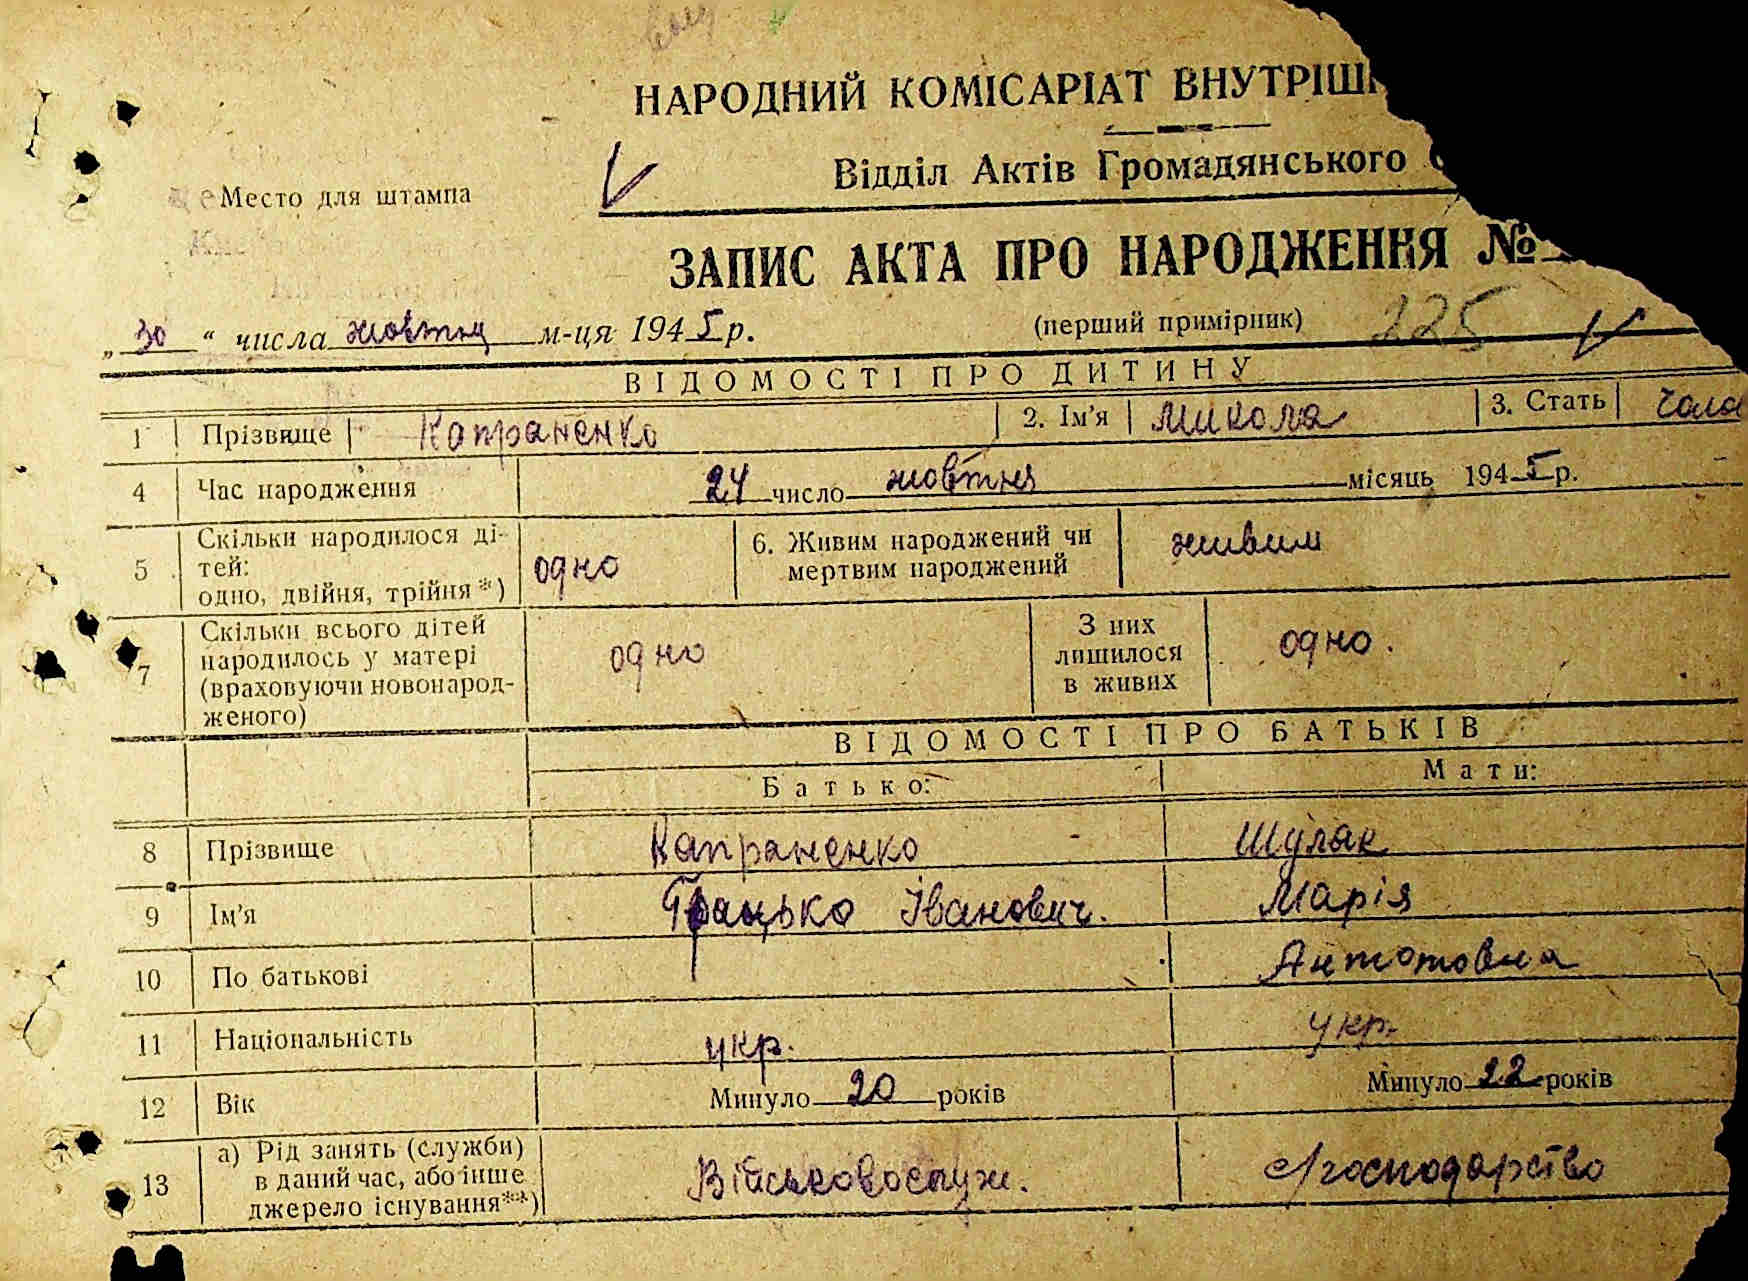 НАРОДНИЙ КОМІСАРІАТ ВНУТРІШ
Відділ Актів Громадянського
Место для штампа
ЗАПИС АКТА ПРО НАРОДЖЕННЯ №
„30“ числа жовтня м-ця 1945 р.
(перший примірник) 225
ВІДОМОСТІ ПРО ДИТИНУ
1 Прізвище Капраненко 2. Ім'я Микола 3. Стать чола
4 Час народження 24 число жовтня місяць 1945 р.
5 Скільки народилося ді-
тей:
одно, двійня, трійня*) одно
6. Живим народжений чи
мертвим народжений живим
7 Скільки всього дітей
народилось у матері
(враховуючи новонарод-
женого) одно
З них
лишилося
в живих одно.
ВІДОМОСТІ ПРО БАТЬКІВ
Батько: Мати:
8 Прізвище Капраненко Шулак
9 Ім'я Грицько Іванович. Марія
10 По батькові Антотовна
11 Національність укр. укр.
12 Вік Минуло 20 років Минуло 22 років
13 а) Рід занять (служби)
в даний час, або інше
джерело існування**) Військовослуж. с/господарство